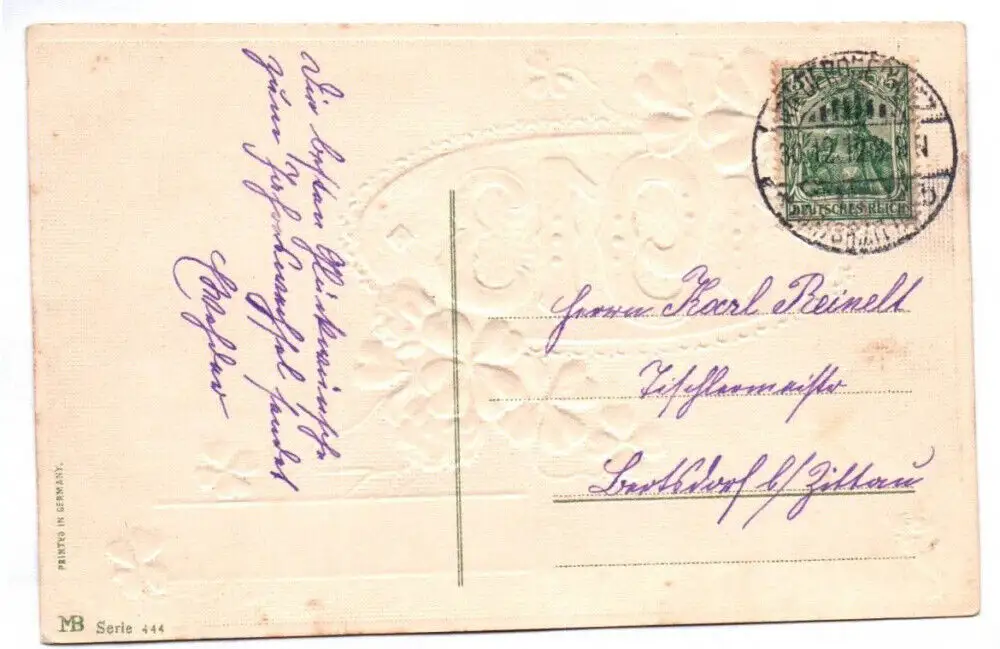 Die besten Glückwünsche
zum Jahreswechsel sendet
DEUTSCHES REICH
30.12.12
Herrn Karl Reinelt
Tischlermeister
Bertsdorf b/Zittau
PRINTED IN GERMANY.
MB Serie 444